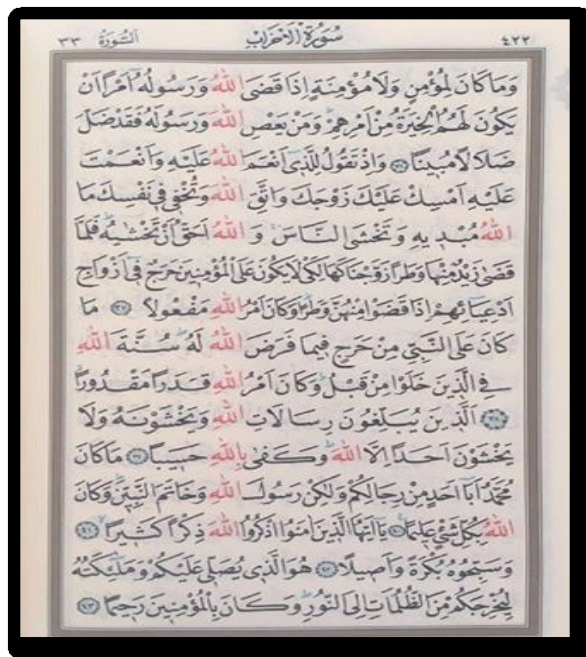 ٤٢٢ سُورَةُ الْاَحْزَابِ السُّورَةُ ٣٣
وَمَا كَانَ لِمُؤْمِنٍ وَلَا مُؤْمِنَةٍ اِذَا قَضَى اللّٰهُ وَرَسُولُهُٓ اَمْرًا اَنْ
يَكُونَ لَهُمُ الْخِيَرَةُ مِنْ اَمْرِهِمْ وَمَنْ يَعْصِ اللّٰهَ وَرَسُولَهُ فَقَدْ ضَلَّ
ضَلَالًا مُبِينًا ٣٦ وَاِذْ تَقُولُ لِلَّذِٓى اَنْعَمَ اللّٰهُ عَلَيْهِ وَاَنْعَمْتَ
عَلَيْهِ اَمْسِكْ عَلَيْكَ زَوْجَكَ وَاتَّقِ اللّٰهَ وَتُخْفِى فِى نَفْسِكَ مَا
اللّٰهُ مُبْدِيهِ وَتَخْشَى النَّاسَ وَاللّٰهُ اَحَقُّ اَنْ تَخْشٰيهُ فَلَمَّا
قَضٰى زَيْدٌ مِنْهَا وَطَرًا زَوَّجْنَاكَهَا لِكَىْ لَا يَكُونَ عَلَى الْمُؤْمِنِينَ حَرَجٌ فِٓى اَزْوَاجِ
اَدْعِيَٓائِهِمْ اِذَا قَضَوْا مِنْهُنَّ وَطَرًا وَكَانَ اَمْرُ اللّٰهِ مَفْعُولًا ٣٧ مَا
كَانَ عَلَى النَّبِىِّ مِنْ حَرَجٍ فِيمَا فَرَضَ اللّٰهُ لَهُ سُنَّةَ اللّٰهِ
فِى الَّذِينَ خَلَوْا مِنْ قَبْلُ وَكَانَ اَمْرُ اللّٰهِ قَدَرًا مَقْدُورًا
٣٨ اَلَّذِينَ يُبَلِّغُونَ رِسَالَاتِ اللّٰهِ وَيَخْشَوْنَهُ وَلَا
يَخْشَوْنَ اَحَدًا اِلَّا اللّٰهَ وَكَفٰى بِاللّٰهِ حَسِيبًا ٣٩ مَا كَانَ
مُحَمَّدٌ اَبَٓا اَحَدٍ مِنْ رِجَالِكُمْ وَلٰكِنْ رَسُولَ اللّٰهِ وَخَاتَمَ النَّبِيّٖنَ وَكَانَ
اللّٰهُ بِكُلِّ شَىْءٍ عَلِيمًا ٤٠ يَٓا اَيُّهَا الَّذِينَ اٰمَنُوا اذْكُرُوا اللّٰهَ ذِكْرًا كَثِيرًا ٤١
وَسَبِّحُوهُ بُكْرَةً وَاَصِيلًا ٤٢ هُوَ الَّذِى يُصَلِّى عَلَيْكُمْ وَمَلٰٓئِكَتُهُ
لِيُخْرِجَكُمْ مِنَ الظُّلُمَاتِ اِلَى النُّورِ وَكَانَ بِالْمُؤْمِنِينَ رَحِيمًا ٤٣